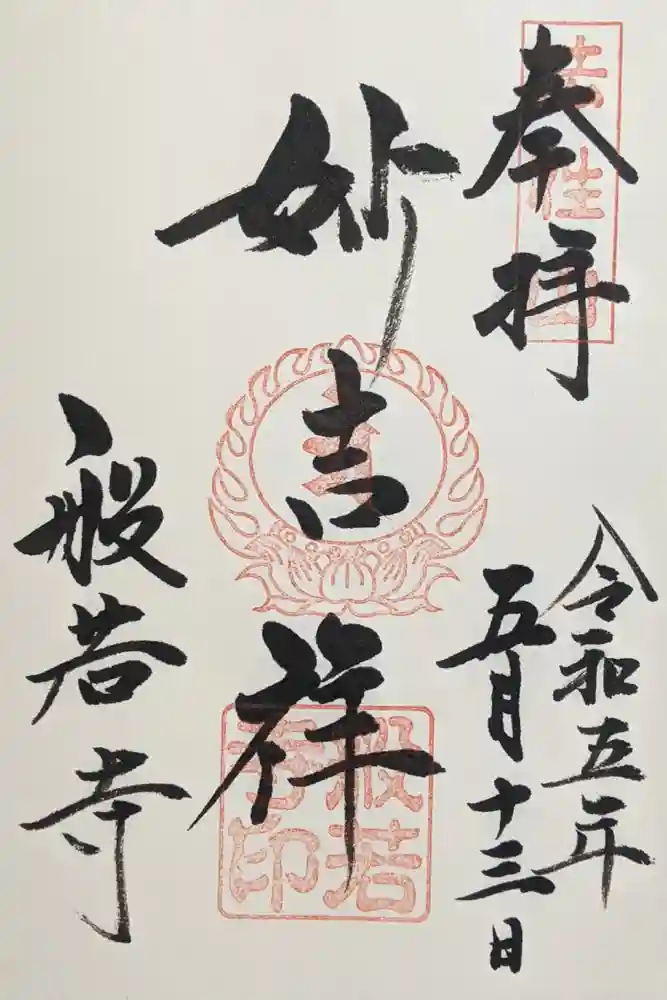 奉拝
法性山
令和五年
五月十三日
妙吉祥
般若寺
般若寺印